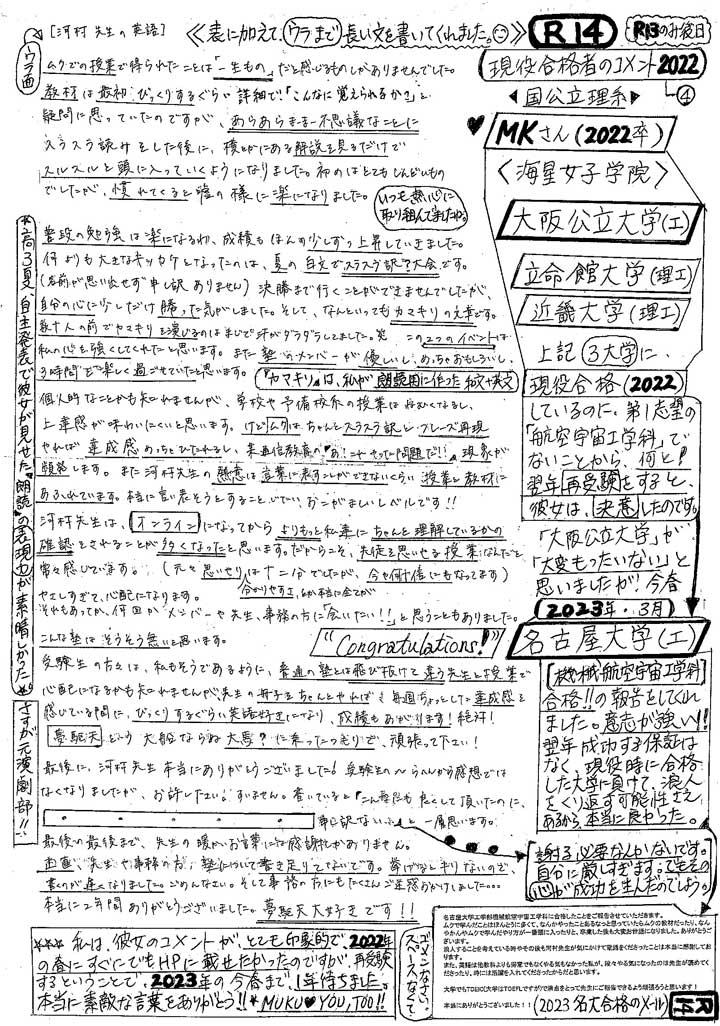 [河村先生の英語]
≪表に加えて、ウラまで長い文を書いてくれました。≫
R14
R13のみ後日
ウラ面
ムクでの授業で得られたことは「一生もの」だと感じるものしかありませんでした。
教材は最初びっくりするぐらい詳細で!「こんなに覚えられるか?」と
疑問に思っていたのですが、あらあらまーまー不思議なことに
スラスラ読みをした後に、横とかにある解説を見るだけで
スルスルと頭に入っていくようになりました。初めはとてもしんどいもの
でしたが、慣れてくると嘘の様に楽になりました。
いつも熱心に
取り組んでましたね。
普段の勉強は楽になるわ、成績もほんの少しずつ上昇していきました。
何よりも大きなキッカケとなったのは、夏の自文でスラスラ訳?大会です。
(名前が思い出せず申し訳ありません)決勝まで行くことができませんでしたが、
自分の心に少しだけ勝った気がしました。そして、なんといってもカマキリの文章です。
数十人の前でカマキリを演じるのはまじで汗がダラダラしてました。笑 この2つのイベントは
私の心を強くしてくれたと思います。また塾のメンバーが優しいし、めっちゃおもしろいし、
3時間もで楽しく過ごせていたと思います。
『カマキリ』は、私が朗読用に作った和文+英文
個人的なことかも知れませんが、学校や予備校系の授業はねむくなるし、
上達感が味わいにくいと思います。けどムクはちゃんとスラスラ訳し、フレーズ再現
やれば達成感めっちゃひたれるし、
願望します。また河村先生の熱意は言葉に表すことができないくらい授業と教材に
あふれています。本当に言い表そうとすること、じたい、おこがましいレベルです!!
河村先生は、オンラインになってからよりもっと私達にちゃんと理解しているかの
確認をされることが多くなったと思います。だからこそ、生徒を思いやる授業なんだと
常々感じています。(元々思いやりは十二分でしたが、今や何十倍にもなってます)
やさしすぎて、心配になります。
分かりやすさ、も本当に全てが
それもあってか、何回かメンバーや先生、事務の方に「会いたい!!」と思うこともありました。
こんな塾はそうそう無いと思います。
"Congratulations!"
受験生の方々は、私もそうであるように、普通の塾とは飛び抜けて違う先生と授業で
心配になるかも知れませんが、先生の冊子をちゃんとやればさ、毎週ちょっとした達成感を
感じている間に、びっくりするぐらい英語好きになり、成績もあがります!絶対!
夢駆天という大船ならぬ大馬?に乗ったつもりで、頑張って下さい!
最後に、河村先生本当にありがとうございました!受験生の〜らへんから感想では
なくなりましたが、お許しください。すいません。書いていると「こんな私にも良くして頂いたのに、
申し訳ないな…」と一層思います。
最後の最後まで、先生の暖かいお言葉には感謝しかありません。
正直、先生や事務の方、塾について書き足りてないです。挙げるとキリないので、
書くのが遅くなりました。ごめんなさい。そして事務の方にもたくさんご迷惑おかけしました…
本当に2年間ありがとうございました。夢駆天大好きです!!
*高3夏、自主発表で彼女が見せた“朗読”の表現力が素晴しかった*
さすが元演劇部!!
☆☆☆ 私は、彼女のコメントが、とても印象的で、2022年
の春にすぐにでもHPに載せたかったのですが、再受験
するということで、2023年の今春まで、1年待ちました。
本当に素敵な言葉をありがとう!!*MUKU♥YOU,TOO!!*
ゴメンなさい、
スペースなくて
現役合格者のコメント2022
④
◀国公立理系▶
♥MKさん(2022卒)
〈海星女子学院〉
大阪公立大学(工)
立命館大学(理工)
近畿大学(理工)
上記3大学に、
現役合格(2022)
しているのに、第1志望の
「航空宇宙工学科」で
ないことから、何と!
翌年再受験をすると、
彼女は、決意したのです。
「大阪公立大学」が
「大変もったいない」と
思いましたが!今春
(2023年・3月)
名古屋大学(工)
[機械・航空宇宙工学科]
合格!!の報告をしてくれ
ました。意志が強い!!
翌年成功する保証は
なく、現役時に合格
した大学に負けて、浪人
をくり返す可能性さえ
あるから本当に良かった。
謝る必要なんかないです。
自分に厳しすぎます。でもその
心が成功を生んだのでしょう。
名古屋大学工学部機械航空宇宙工学科に合格したことをご報告させていただきます。
ムクで学んだことはほんとうに多くて、なんやかんやとあるなっと思っていたらムクの教材だったり、なんやかんやムクで学んだやり方が一番頭に入ったりと、卒業した後も大変お世話になりました。ありがとうございます。
浪人することを考えている時やその後も河村先生が気にかけて電話をくださったことは本当に感謝しております。
大学でもTOEIC(大学はTOEFLですが)で満点をとって先生にご報告できるよう頑張ろうと思います!
本当にありがとうございました!!
(2023名大合格のメール)
R14